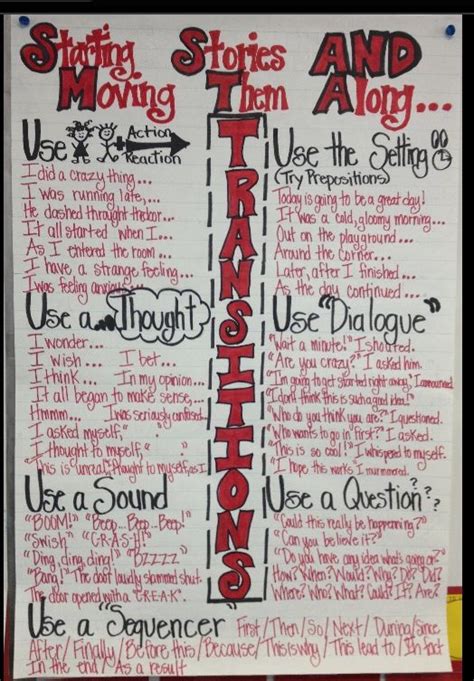 Starting Stories AND
Moving Them Along...
TRANSITIONS
Use Action
Reaction
I did a crazy thing...
I was running late,...
He dashed throught the door...
It all started when I...
As I entered the room...
I have a strange feeling...
I was feeling anxious...
Use the Setting
(Try Prepositions)
Today is going to be a great day!
It was a cold, gloomy morning...
Out on the playground...
Around the corner...
Later, after I finished...
As the day continued...
Use a...Thought
I wonder...
I wish... I bet...
I think... In my opinion...
It all began to make sense,...
Hmmm... I was seriously confused...
I asked myself,"
I thought to myself,"
"This is unreal," thought to myself, as I
Use "Dialogue"
"Wait a minute!" I shouted.
"Are you crazy?" I asked him.
"I'm going to get started right away," I announced.
"I don't think this is such a good idea!"
"Who do you think you are?" I questioned.
"Who wants to go in first?" I asked.
"This is so cool!" I whispered to myself.
"I hope this works" I murmered.
Use a Sound
"BOOM!" "Beep...Beep...Beep!"
"Swish" "C-R-A-S-H!"
"Ding, ding, ding!" "BZZZZ"
"Bang!" The door loudly slammed shut.
The door opened with a "C.R.E.A.K".
Use a Question??
"Could this really be happening?"
"Can you believe it?"
"Do you have any idea what's going on?"
How? When? Would? Why? Do? Did?
Where? Who? What? Could? If? Are?
Use a "Sequencer" First/Then/So/Next/During/Since
After/Finally/Before this/Because/This is why/This lead to/In fact
In the end/As a result